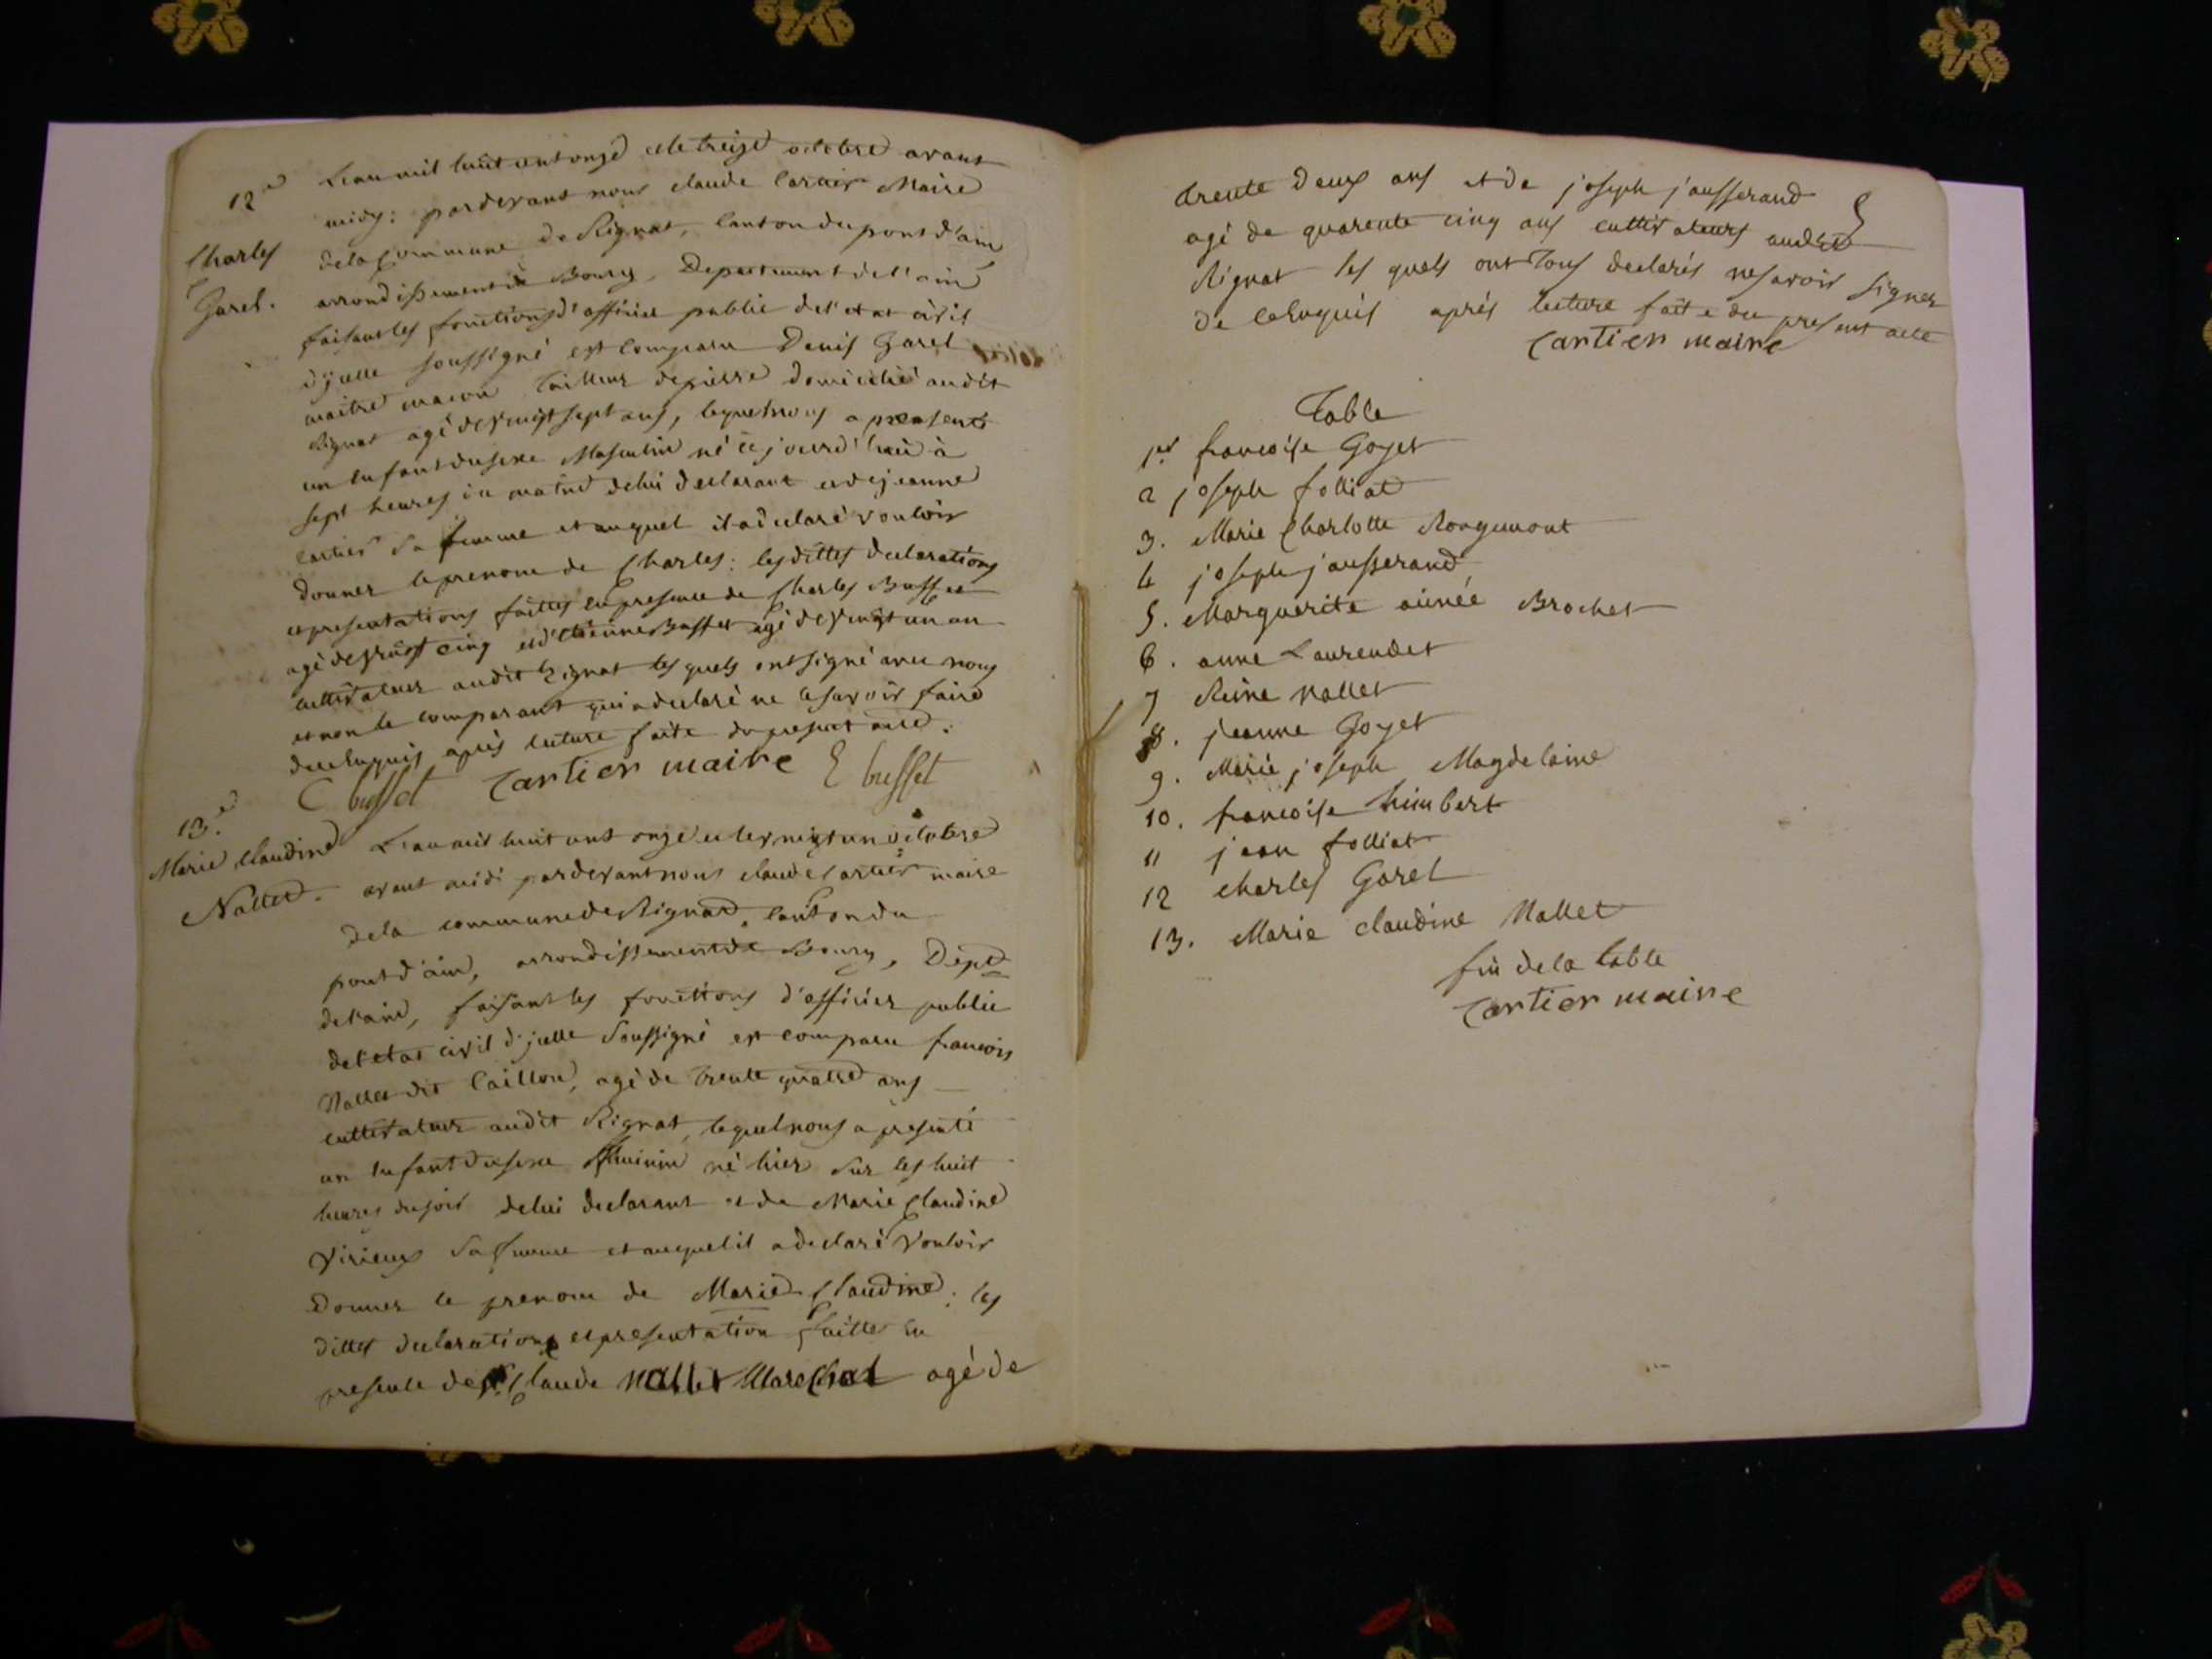 12e
Charles
Garel.
L'an mil huit cent onze et le treize octobre avant
midy: pardevant nous claude Cartier Maire
de la Commune de Rignat, Canton du pont d'ain
arrondissement de Bourg, Departement de l'ain
faisant les fonctions d'officier public de l'etat civil
d'jcelle soussigné est Comparu Denis Garel
maitre macon tailleur de pierre domicilié audit
Rignat agé de vingt sept ans, lequel nous a presenté
un Enfant du sexe Masculin né cejourd'hui à
sept heures du matin de lui declarant et de jeanne
Cartier sa femme et auquel il a declaré vouloir
donner le prenom de Charles: les dittes declarations
et presentations faittes en presence de Charles Buffet
agé de vingt cinq et d'Etienne Buffet agé de vingt un an
cultivateur audit Rignat les quels ont signé avec nous
et non le comparant qui a declaré ne le savoir faire
de ce Enquis après lecture faite du present acte.
C buffet Cartier maire E buffet
13e.
Marie Claudine
Nallet.
L'an mil huit cent onze et le vingt un octobre
avant midi pardevant nous claude Cartier maire
de la commune de Rignat, Canton du
pont d'ain, arrondissement de Bourg, Dept
de l'ain, faisant les fonctions d'officier public
de l'etat civil d'jcelle Soussigné est comparu francois
Nallet dit Caillon, agé de trente quatre ans
cultivateur audit Rignat, lequel nous a presenté
un Enfant du sexe feminin né hier sur les huit
heures du soir de lui declarant et de Marie Claudine
Virieux sa femme et auquel il a declaré vouloir
Donner le prenom de Marie Claudine; les
dittes declarations et presentation faitte En
presence de Claude Nallet Marechal agé de
trente deux ans et de joseph jausserand
agé de quarente cinq ans cultivateurs audit
Rignat les quels ont tous declarés ne savoir signer
de ce Enquis après lecture faite du present acte
Cartier maire
Table
1er francoise Goyet
2 joseph folliat
3. Marie Charlotte Rougemont
4 joseph jausserand
5. Marguerite aimée Brochet
6. anne Laurendet
7 Reine Nallet
8. jeanne Goyet
9. Marie joseph Magdelaine
10. francoise himbert
11 jean folliat
12 Charles Garel
13. Marie Claudine Nallet
fin de la table
Cartier maire